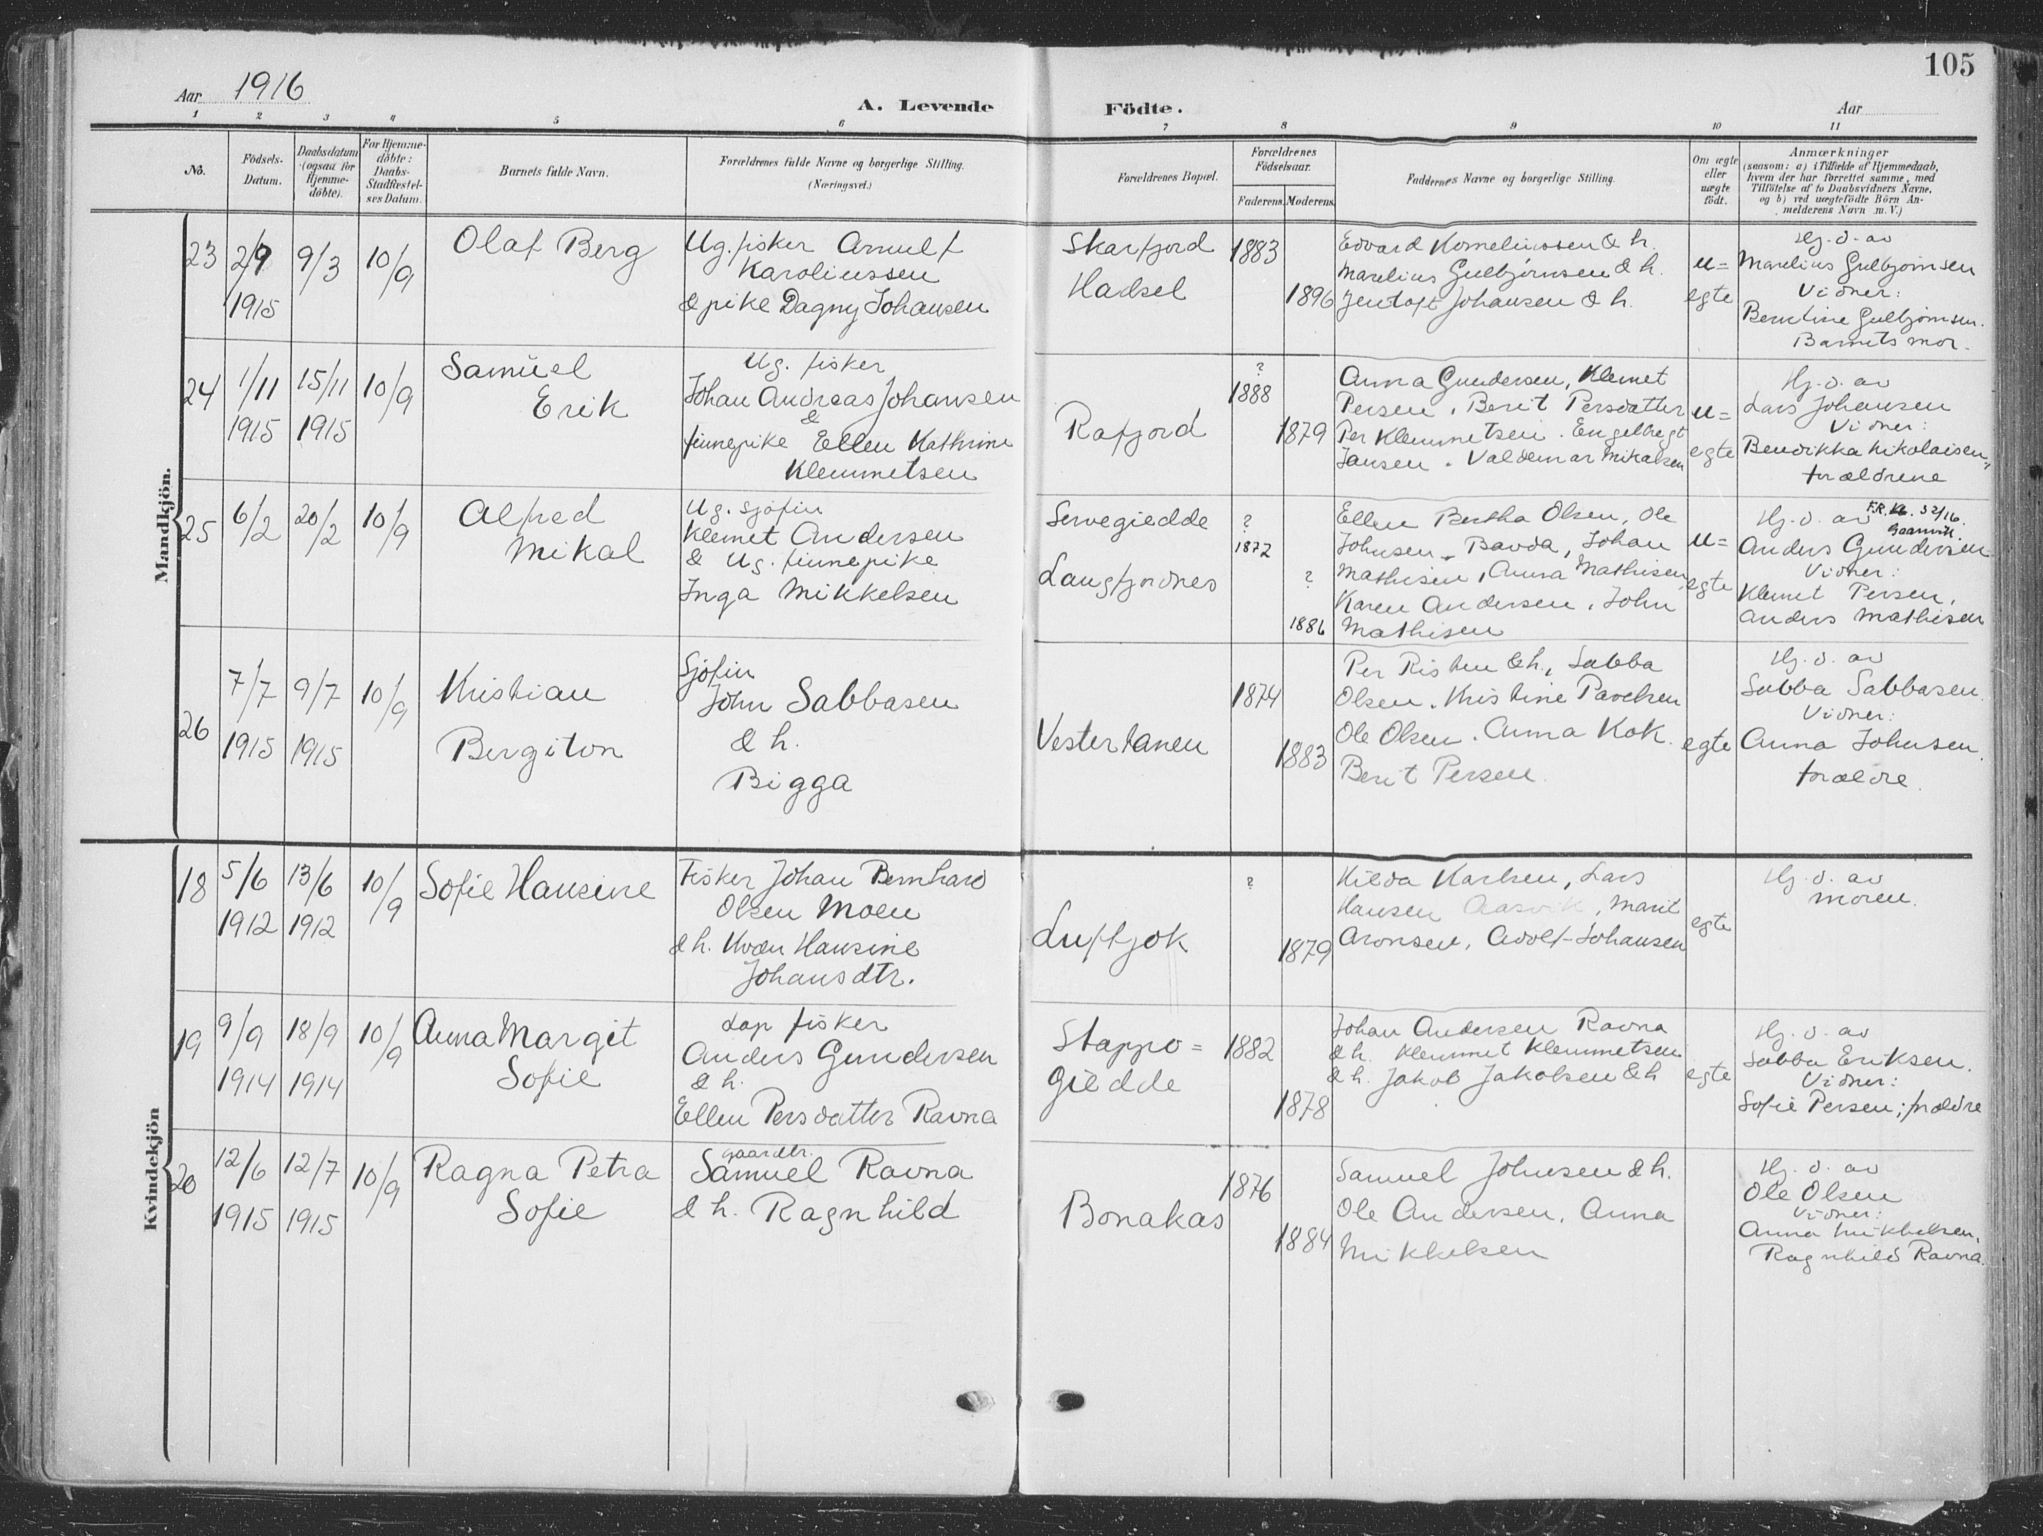 105
Aar 1916
A. Levende Födte.
Aar
1 2 3 4 5 6 7 8 9 10 11
No.
Födsels-
Datum.
Daabsdatum
(ogsaa for
Hjemme-
döbte).
For Hjemme-
döbte:
Daabs-
Stadfæstel-
ses Datum.
Barnets fulde Navn.
Forældrenes fulde Navne og borgerlige Stilling.
(Næringsvei.)
Forældrenes Bopæl.
Forældrenes
Födselsaar.
Faderens. Moderens.
Faddernes Navne og borgerlige Stilling.
Om ægte
eller
uægte
födt.
Anmærkninger
(saasom: a) i Tilfælde af Hjemmedaab,
hvem der har forrettet samme, med
Tilföielse af to Daabsvidners Navne,
og b) ved uægtefödte Börn An-
melderens Navn m. V.)
Mandkjön.
23
2/9
1915
9/3
10/9
Olaf Berg
Ug. fisker Arnulf
Karoliussen
& pike Dagny Johansen
Skarfjord
Hadsel
1883
1896
Edvard Korneliussen & h.
Marelius Gulbjørnsen & h.
Jentoft Johansen & h.
u=
egte
Hj. d. av
Marelius Gulbjørnsen
Vidner:
Berntine Gulbjørnsen.
Barnets mor.
24
1/11
1915
15/11
1915
10/9
Samuel
Erik
Ug. fisker
Johan Andreas Johansen
&
finnepike Ellen Kathrine
Klemmetsen
Rafjord
?
1888
1879
Anna Gundersen, Klemet
Persen, Berit Persdatter
Per Klemmetsen. Engelbregt
Jansen. Valdemar Mikalsen
u=
egte
Hj. d. av
Lars Johansen
Vidner:
Bendikka Nikolaisen,
forældrene
25
6/2
20/2
10/9
Alfred
Mikal
Ug. sjøfin
Klemet Andersen
& Ug. finnepike
Inga Mikkelsen
Servegiedde
Langfjordnes
?
1872
?
1886
Ellen Bertha Olsen, Ole
Johnsen Bavda, Johan
Mathisen, Anna Mathisen
Karen Andersen, John
Mathisen
u=
egte
Hj. d. av F.R. No. 32/16.
Gaarvik.
Anders Gundersen
Vidner:
Klemet Persen,
Anders Mathisen
26
7/7
1915
9/7
1915
10/9
Kristian
Bergiton
Sjøfin
John Sabbasen
& h.
Bigga
Vestertanen
1874
1883
Per Risten & h., Sabba
Olsen. Kristine Pavelsen
Ole Olsen. Anna Kok.
Berit Persen.
egte
Hj. d. av
Sabba Sabbasen.
Vidner:
Anna Johnsen.
forældre.
Kvindekjön
18
5/6
1912
13/6
1912
10/9
Sofie Hansine
Fisker Johan Bernhard
Olsen Moen
& h. Kvæn Hansine
Johansdtr.
Luftjok
?
1879
Hilda Karlsen, Lars
Hansen Aasvik, Marit
Aronsen, Adolf Johansen
egte
Hj. d. av
moren.
19
9/9
1914
18/9
1914
10/9
Anna Margit
Sofie
Lap fisker
Anders Gundersen
& h.
Ellen Persdatter Ravna
Stappo=
Giedde
1882
1878
Johan Andersen Ravna
& h. Klemmet Klemmetsen
& h. Jakob Jakobsen & h
egte
Hj. d. av
Sabba Eriksen.
Vidner:
Sofie Persen; forældre
20
12/6
1915
12/7
1915
10/9
Ragna Petra
Sofie
gaardbr.
Samuel Ravna
& h. Ragnhild
Bonakas
1876
1884
Samuel Johnsen & h.
Ole Andersen, Anna
Mikkelsen
Hj. d. av
Ole Olsen
Vidner:
Anna Mikkelsen,
Ragnhild Ravna.